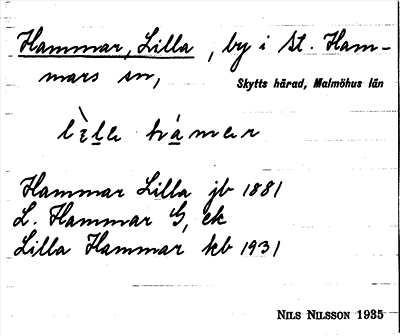 Hammar, Lilla, by i St. Ham-
mars sn,
Skytts härad, Malmöhus län
lìla hámar
Hammar Lilla jb 1881
L. Hammar G, ek
Lilla Hammar kb 1931
NILS NILSSON 1935